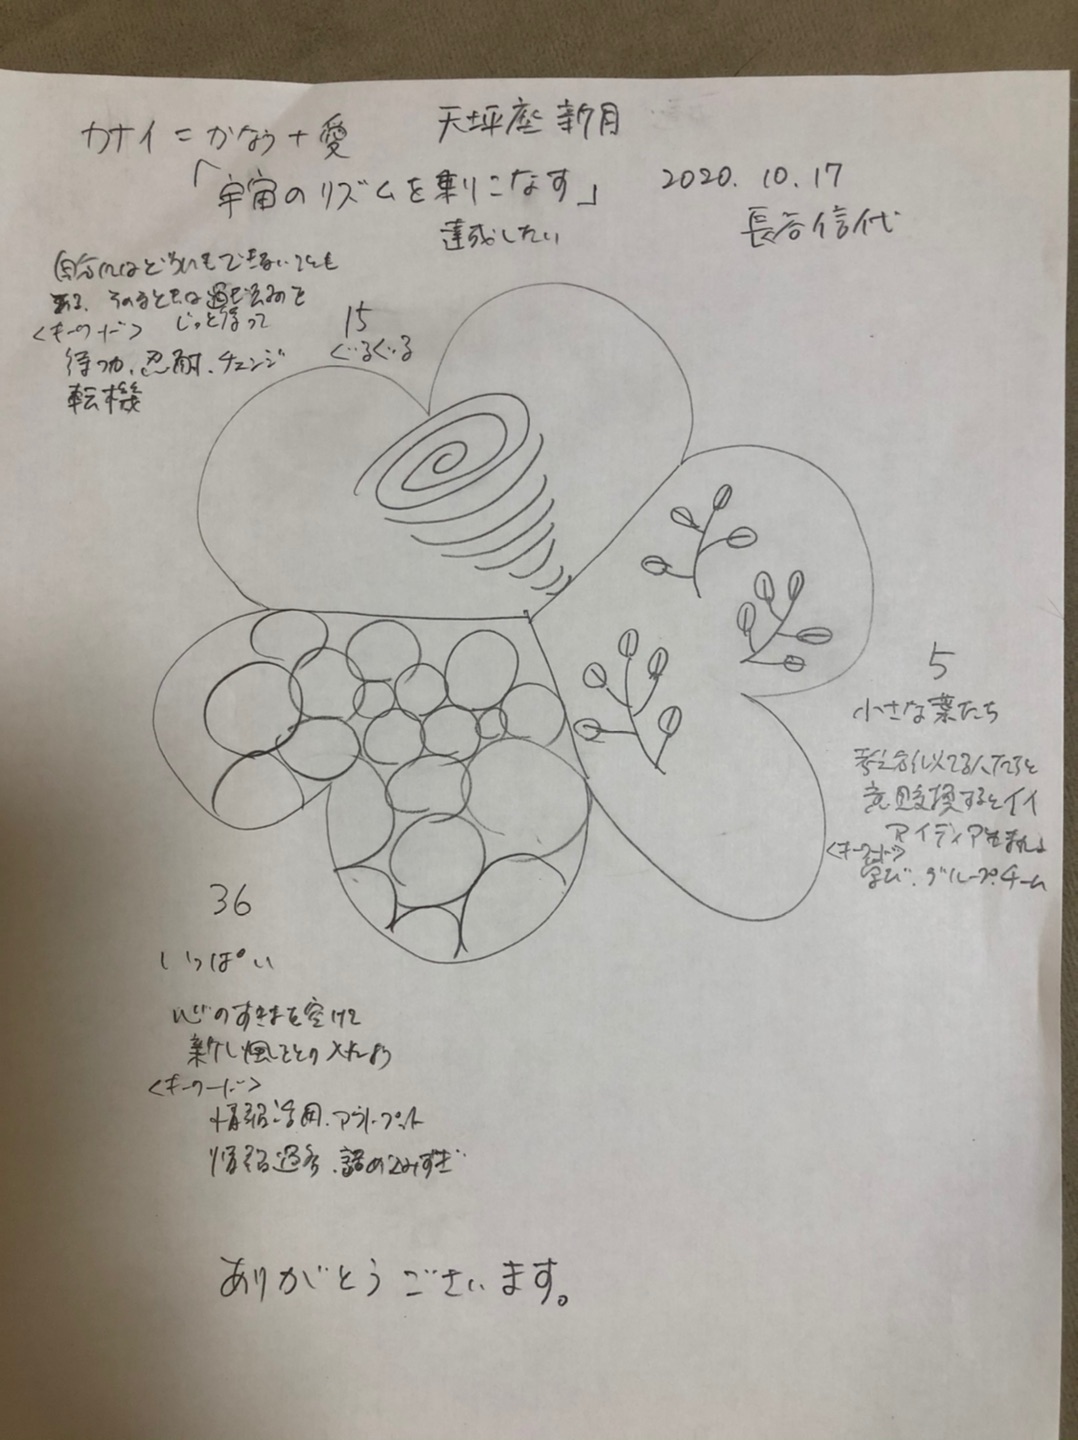 カナイ = かなう + 愛
天坪座 新月
「宇宙のリズムを乗りこなす」
2020. 10. 17
達成したい
長谷信代
自分ではどうにもできないことも
ある、そのときは過ぎ去るのを
じっと待って
<キーワード>
待つ力、忍耐、チェンジ
転機
15
ぐるぐる
5
小さな葉たち
考え方似てる人たちと
意見交換するとイイ
アイディア生まれる
<キーワード>
学び、グループ、チーム
36
いっぱい
心のすきまを空けて
新しい風をとり入れよう
<キーワード>
情報活用、アウトプット
情報過多、詰め込みすぎ
ありがとうございます。